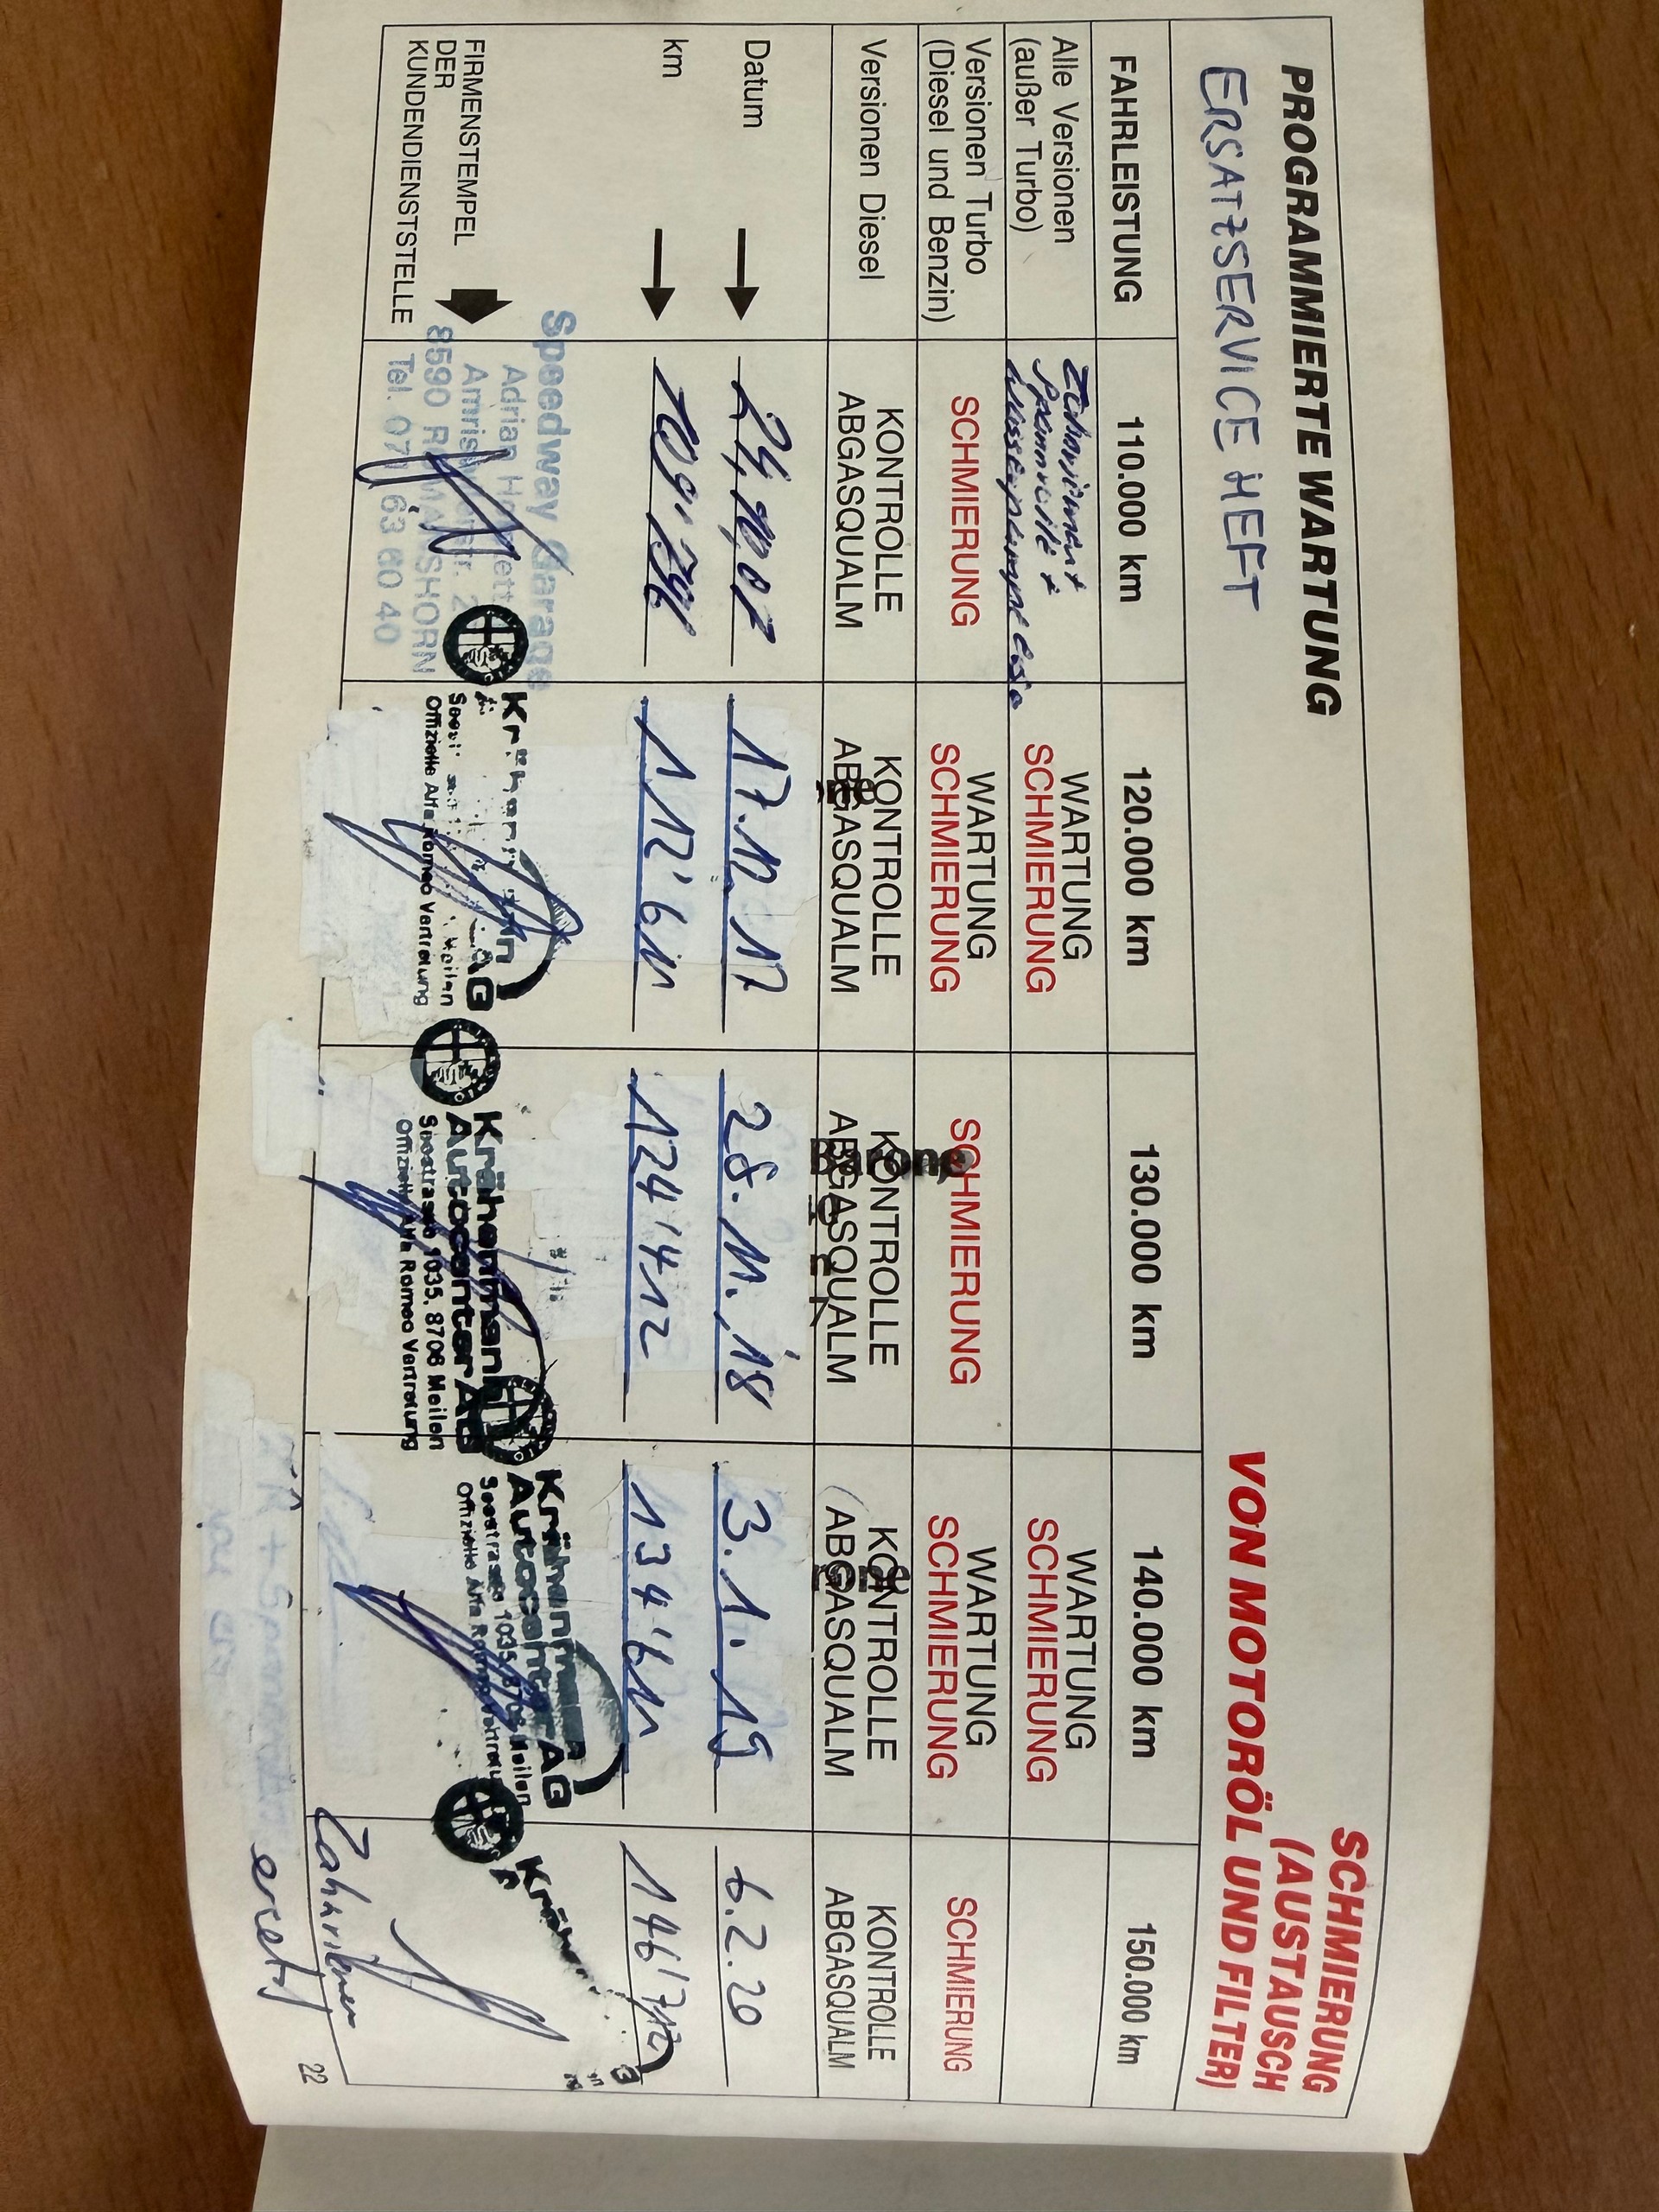 PROGRAMMIERTE WARTUNG
SCHMIERUNG
(AUSTAUSCH
VON MOTORÖL UND FILTER)
ERSATZSERVICE HEFT
FAHRLEISTUNG
110.000 km
120.000 km
130.000 km
140.000 km
150.000 km
Alle Versionen
(außer Turbo)
Zahnriemen +
Spannrolle +
Wasserpumpe
WARTUNG
SCHMIERUNG
WARTUNG
SCHMIERUNG
Versionen Turbo
(Diesel und Benzin)
SCHMIERUNG
WARTUNG
SCHMIERUNG
SCHMIERUNG
WARTUNG
SCHMIERUNG
SCHMIERUNG
Versionen Diesel
KONTROLLE
ABGASQUALM
KONTROLLE
ABGASQUALM
KONTROLLE
ABGASQUALM
KONTROLLE
ABGASQUALM
KONTROLLE
ABGASQUALM
Datum
17.10.17
28.11.18
3.1.19
6.2.20
km
112'611
124'412
134'611
146'712
FIRMENSTEMPEL
DER
KUNDENDIENSTSTELLE
Speedway Garage
Adrian
8590
Tel. 071 63 60 40
AG
Meilen
Offizielle Alfa Romeo Vertretung
Krähenmann
Autocenter AG
Seestrasse 1035, 8706 Meilen
Offizielle Alfa Romeo Vertretung
Krähenmann
Autocenter AG
Seestrasse 1035, 8706 Meilen
Offizielle Alfa Romeo
Zahnriemen
ersetzt
22